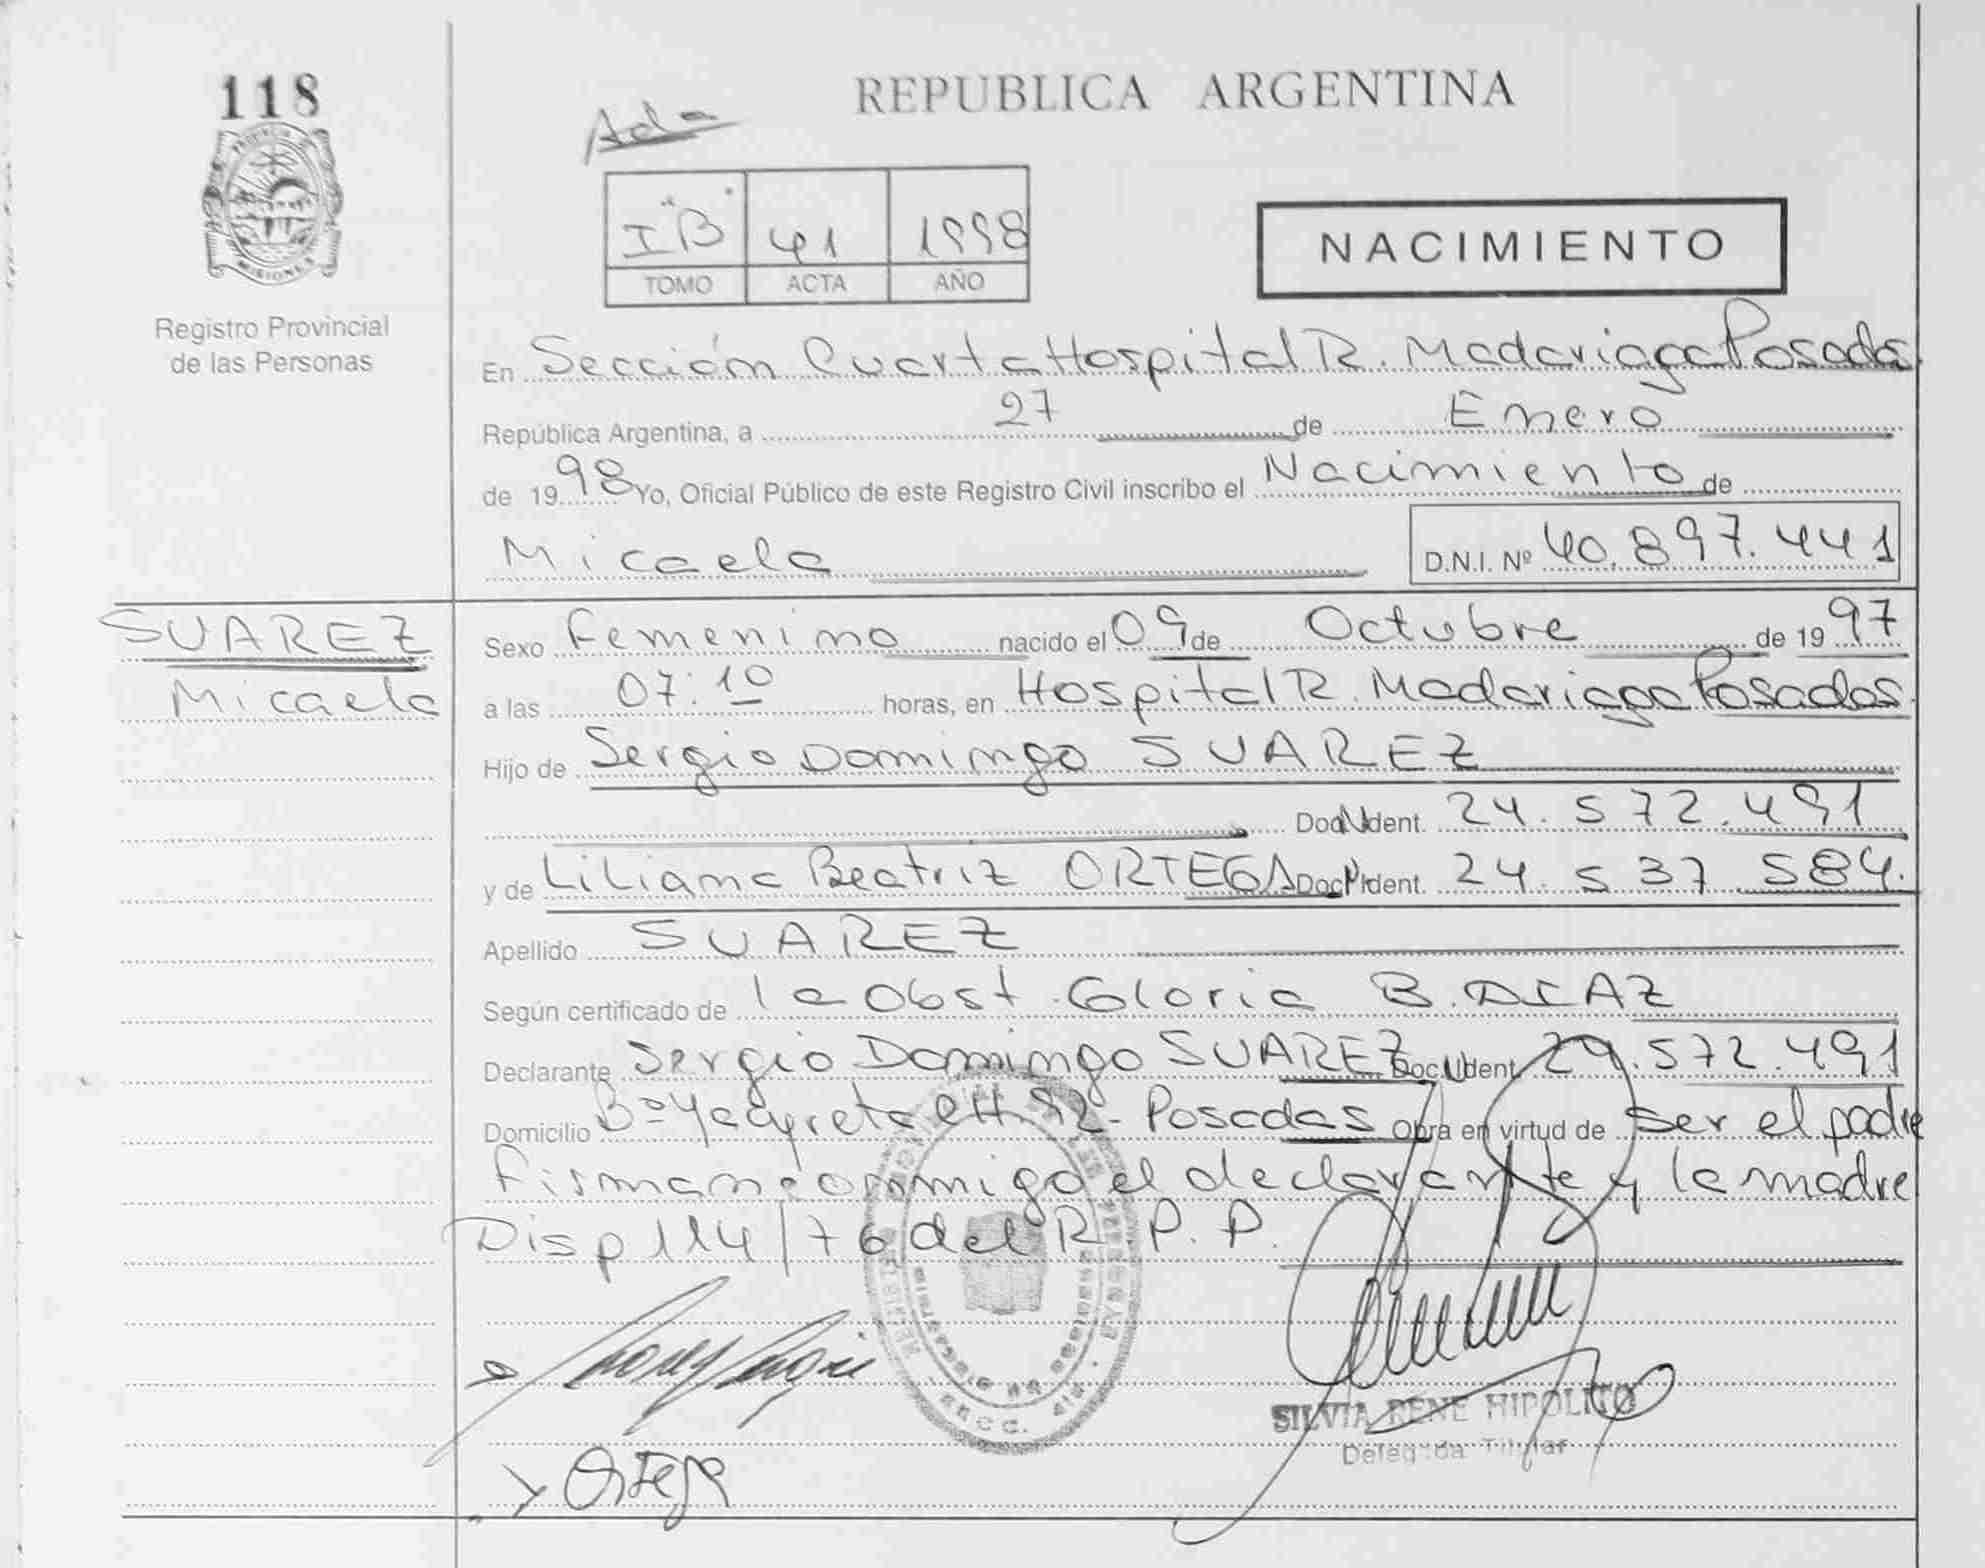 118
REPUBLICA ARGENTINA
I "B" 41 1998
TOMO ACTA AÑO
NACIMIENTO
PROVINCIA DE MISIONES
Registro Provincial
de las Personas
En Sección Cuarta Hospital R. Madariaga Posadas.
República Argentina, a 27 de Enero
de 1998 Yo, Oficial Público de este Registro Civil inscribo el Nacimiento de
Micaela D.N.I. Nº 40.897.441
SUAREZ
Micaela
Sexo Femenino nacido el 09 de Octubre de 1997
a las 07:10 horas, en Hospital R. Madariaga Posadas.
Hijo de Sergio Domingo SUAREZ
Doc. Ident. 24.572.491
y de Liliana Beatriz ORTEGA Doc. Ident. 24.537.584.
Apellido SUAREZ
Según certificado de la Obst. Gloria B. DIAZ
Declarante Sergio Domingo SUAREZ Doc. Ident. 24.572.491
Domicilio Bº Yacyreta CH 92 - Posadas Obra en virtud de ser el padre
Firman conmigo el declarante y la madre
Disp 114/76 del R. P. P.
SILVIA RENE HIPOLITO
Delegada Titular
Ortega